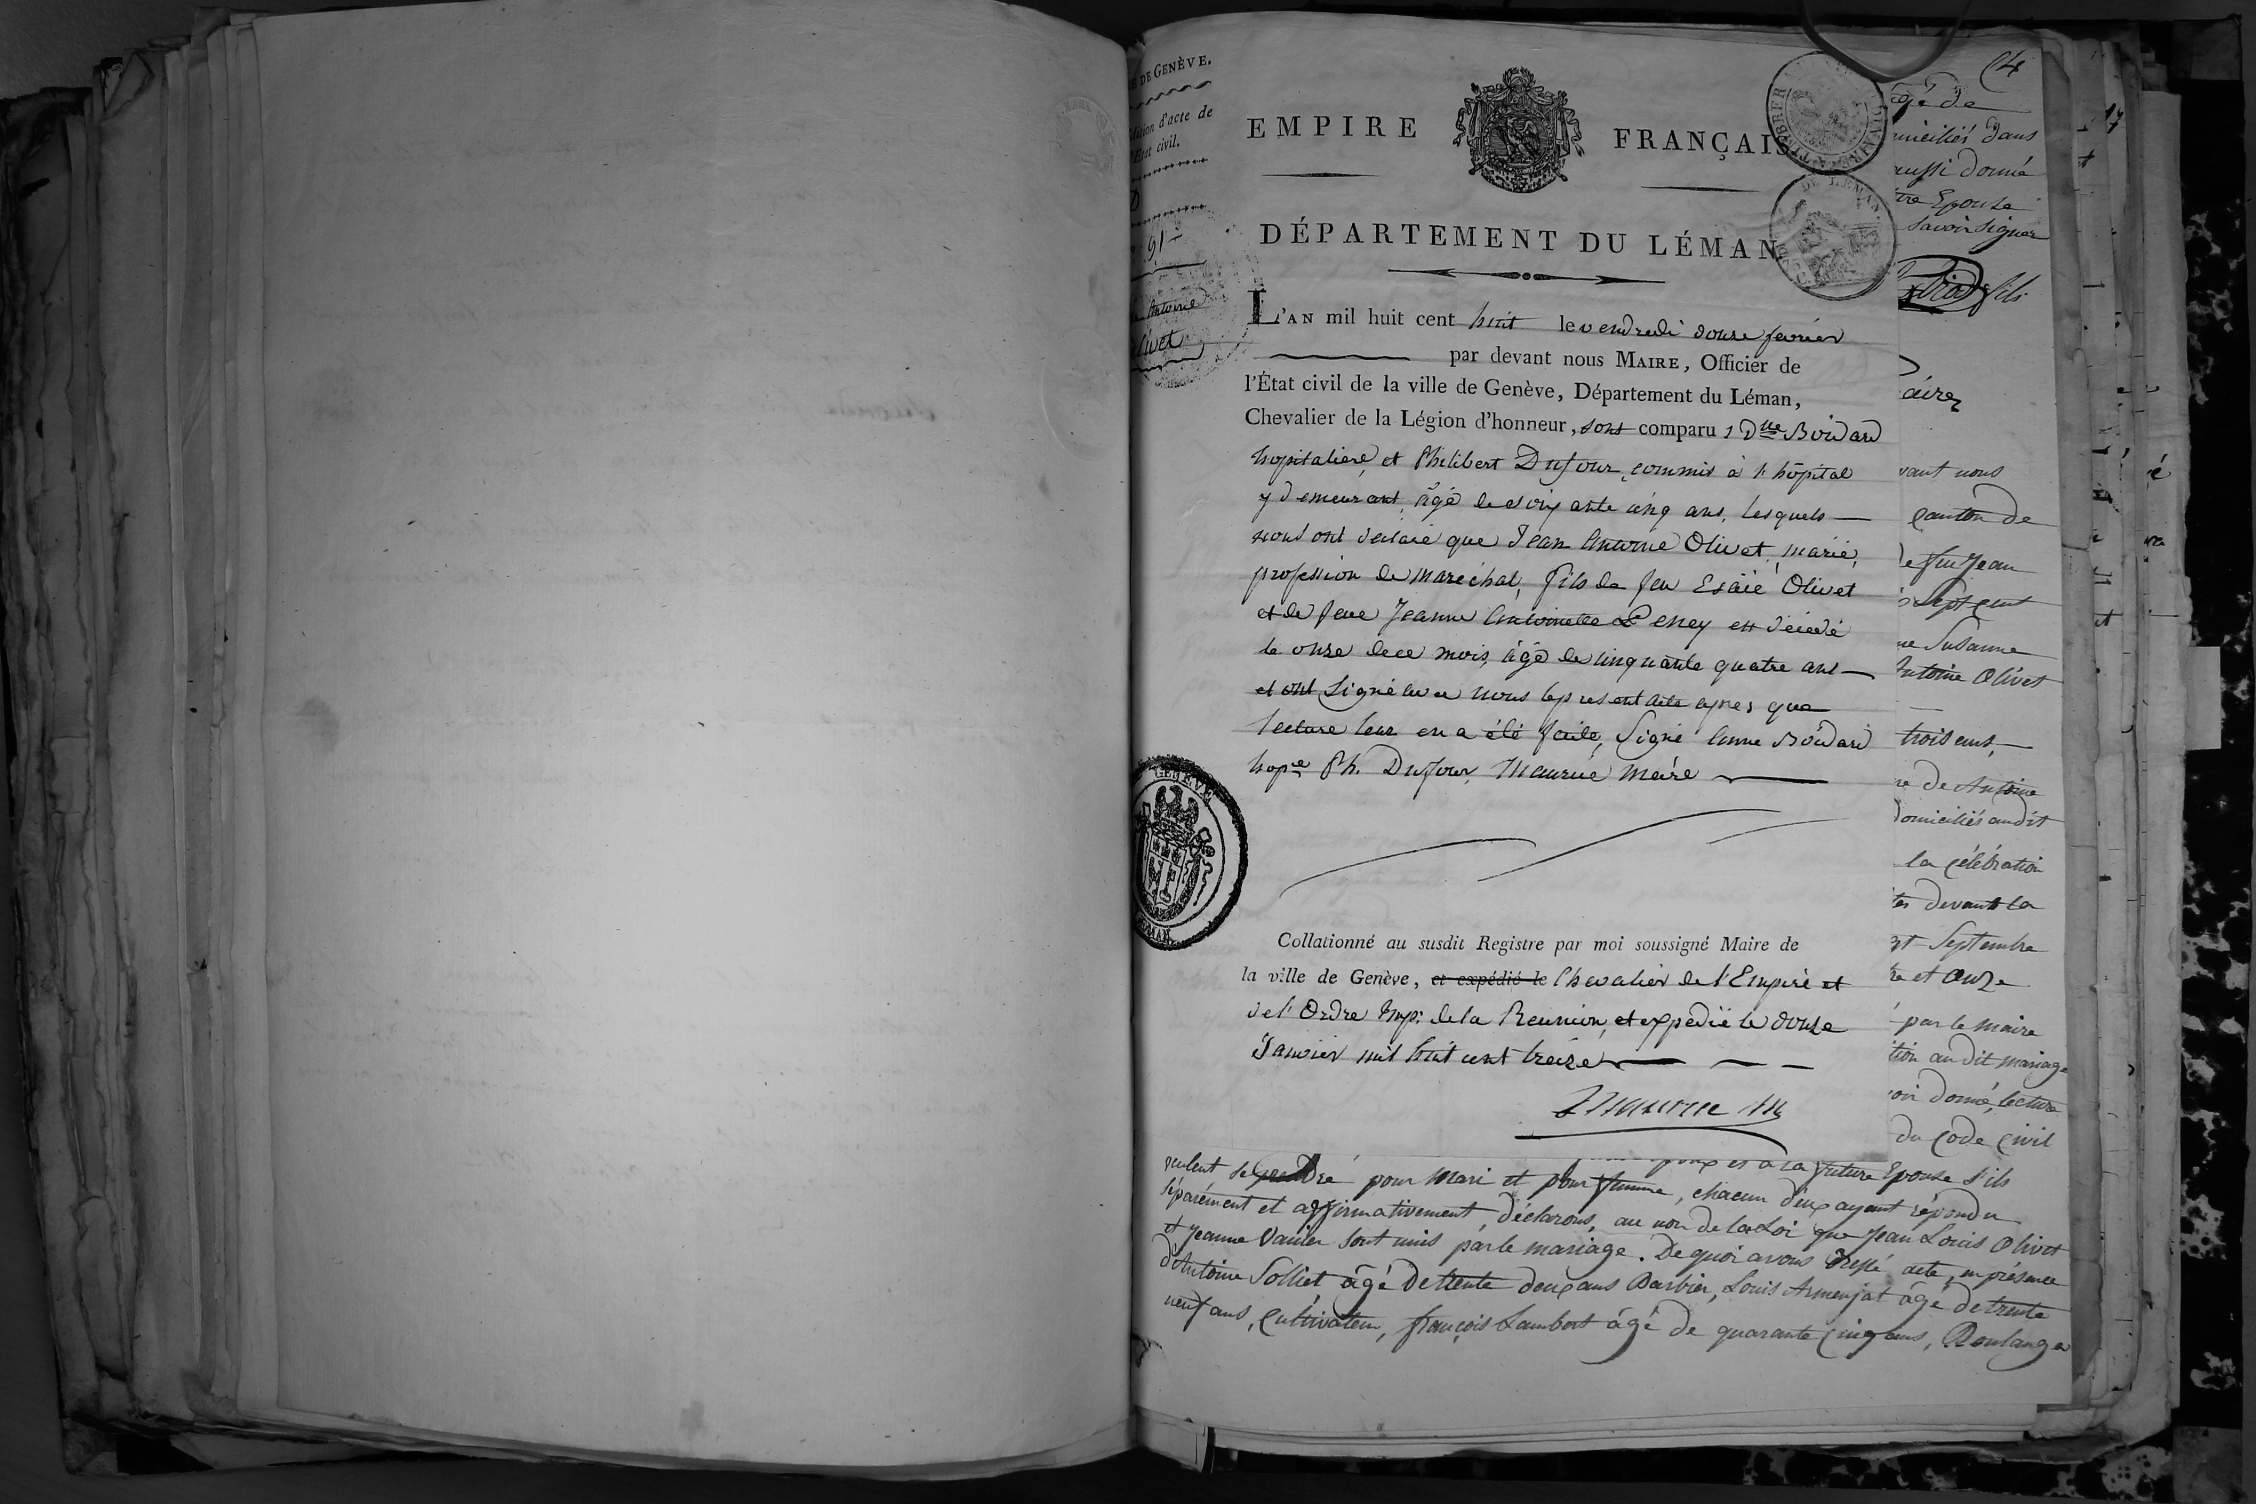 DE GENÈVE.
d'acte de
État civil.
91
Antoine
Olivet
EMPIRE FRANÇAIS
DÉPARTEMENT DU LÉMAN
L'AN mil huit cent huit le vendredi douze fevrier
par devant nous MAIRE, Officier de
l'État civil de la ville de Genève, Département du Léman,
Chevalier de la Légion d'honneur, sont comparu, Dlle Boidard
hopitaliere, et Philibert Dufour, commis à l'hôpital
y demeurant, âgé de soixante cinq ans, lesquels
nous ont déclaré que Jean Antoine Olivet, marié,
profession de maréchal, fils de feu Esaïe Olivet
et de feue Jeanne Antoinette Peney est décédé
le onze de ce mois, âgé de cinquante quatre ans
et ont signé avec nous le present acte apres que
lecture leur en a été faite, Signé Anne Boidard
hopre Ph. Dufour, Maurice maire
GENÈVE
LÉMAN
Collationné au susdit Registre par moi soussigné Maire de
la ville de Genève, et expédié le Chevalier de l'Empire et
de l'Ordre Imp: de la Reunion, et expedié le douze
Janvier mil huit cent treize
Maurice
agé de
domiciliés dans
aussi donné
Epouse
savoir signer
fils
Maire
devant nous
canton de
de feu Jean
sept cent
Susanne
Antoine Olivet
trois ans,
de Antoine
domiciliés audit
la célébration
devant la
Septembre
et onze
par le maire
audit mariage
donné lecture
du Code Civil
future Epouse s'ils
veulent se prendre pour mari et pour femme, chacun d'eux ayant répondu
séparément et affirmativement, déclarons, au nom de la Loi que Jean Louis Olivet
et Jeanne Vanier sont unis par le mariage. De quoi avons dressé acte, en présence
d'Antoine Solliet, âgé de trente deux ans Barbier, Louis Armenjat âgé de trente
neuf ans, Cultivateur, françois Lambert âgé de quarante cinq ans, Boulanger